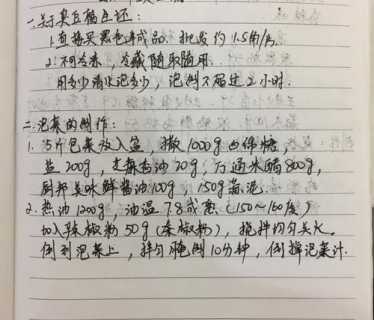 一.关于臭豆腐生还:
1.直接买黑色半成品. 批发约1.5角/片.
2.不用冷冻 冷藏随取随用.
用多少清水泡多少, 泡制不超过2小时.
二.泡菜的制作:
1.15斤包菜放入盆, 撒1000g白绵糖,
盐200g, 芝麻香油20g, 万通米醋800g,
厨邦美味鲜酱油100g, 150g蒜泥.
2.热油1200g, 油温7.8成热(150~160度)
加入辣椒粉50g(辣椒粉), 搅拌均匀关火.
倒到泡菜上, 拌匀腌制10分钟, 倒掉泡菜汁.